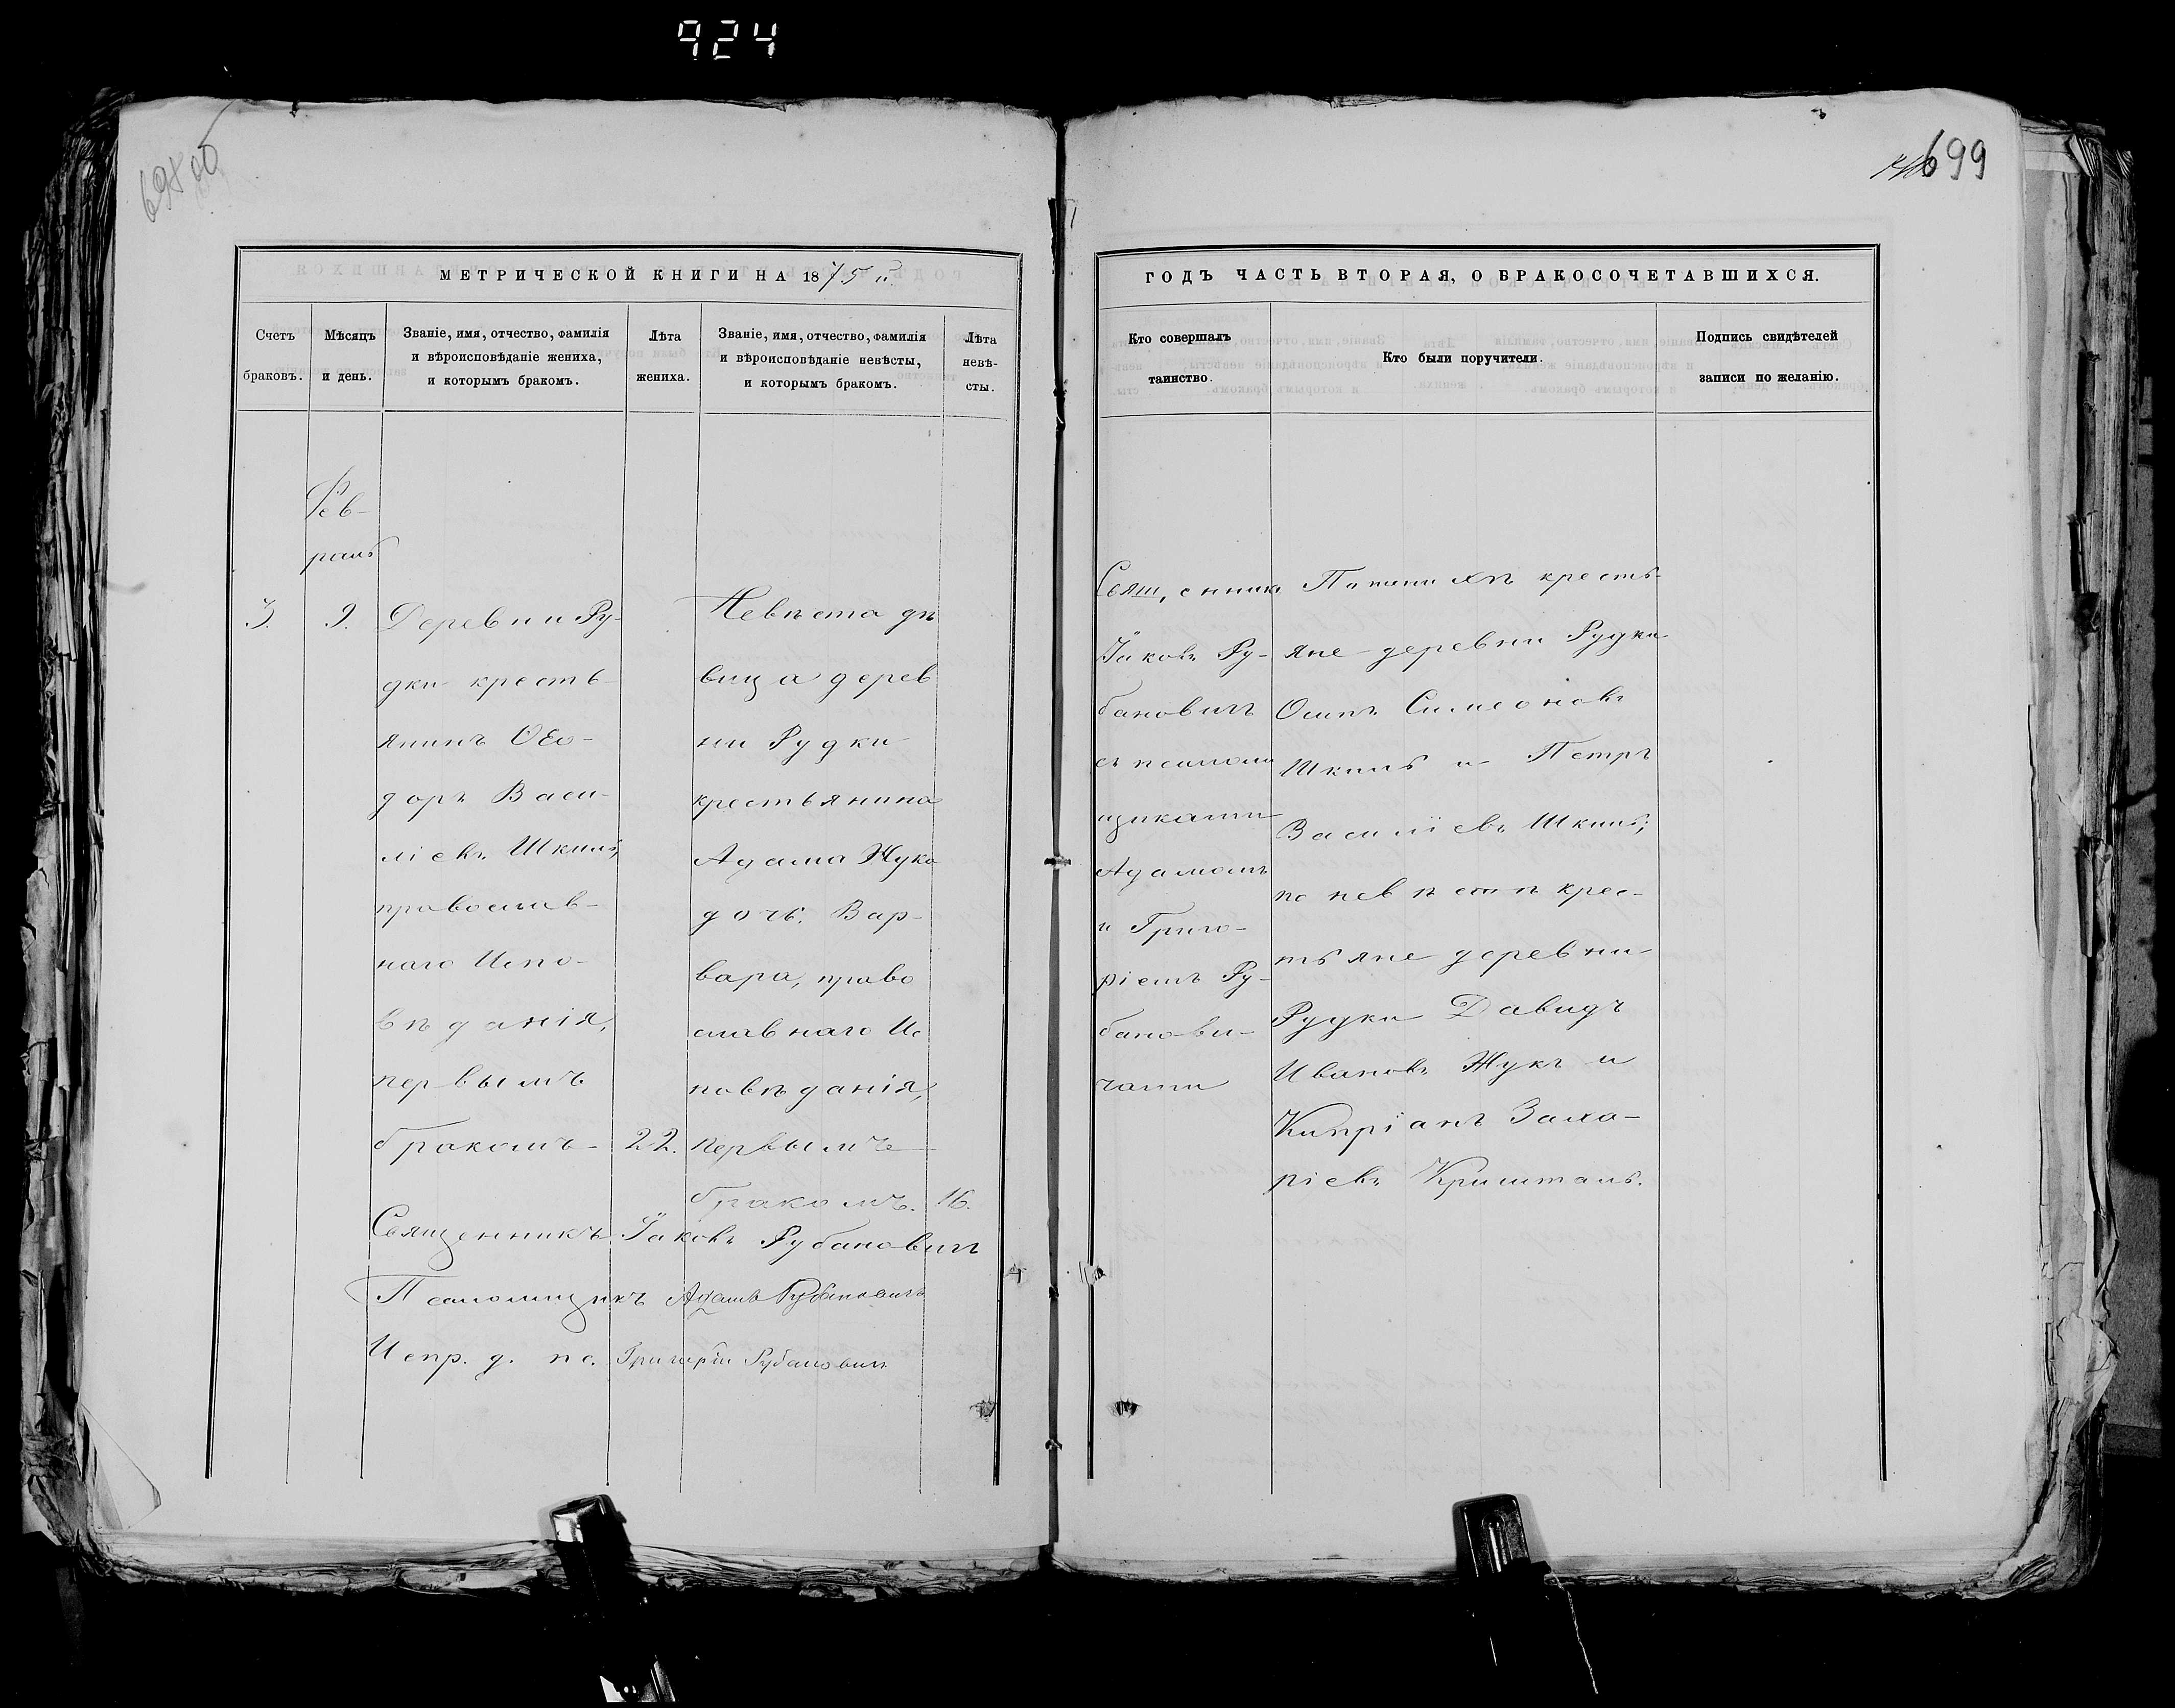 924
699
МЕТРИЧЕСКОЙ КНИГИ НА 1875 й
Счетъ браковъ.
Мѣсяцъ и день.
Званіе, имя, отчество, фамилія
и вѣроисповѣданіе жениха,
и которымъ бракомъ.
Лѣта
жениха.
Званіе, имя, отчество, фамилія
и вѣроисповѣданіе невѣсты,
и которымъ бракомъ.
Лѣта
невѣ-
сты.
Фев-
раль
3.
9.
Деревни Ру-
дки кресть-
янинъ Ѳео-
доръ Васи-
ліевъ Шкиль,
православ-
наго Испо-
вѣданія,
первымъ
бракомъ
22.
Невѣста дѣ
вица дерев
ни Рудки
крестьянина
Адама Жука
дочь Вар-
вара, право
славнаго Ис
повѣданія,
первымъ
бракомъ.
16.
Священникъ Іаковъ Рубановичъ
Псаломщикъ Адамъ Рубановичъ
Испр. д. пс. Григорій Рубановичъ
ГОДЪ ЧАСТЬ ВТОРАЯ, О БРАКОСОЧЕТАВШИХСЯ.
Кто совершалъ
таинство.
Кто были поручители.
Подпись свидѣтелей
записи по желанію.
Священникъ
Іаковъ Ру-
бановичъ
съ псалом
щиками
Адамомъ
и Григо-
ріемъ Ру-
банови-
чами
По женихѣ кресть-
яне деревни Рудки
Осипъ Симеоновъ
Шкиль и Петръ
Василіевъ Шкиль;
по невѣстѣ крес-
тьяне деревни
Рудки Давидъ
Ивановъ Жукъ и
Кипріанъ Заха-
ріевъ Кришталь.